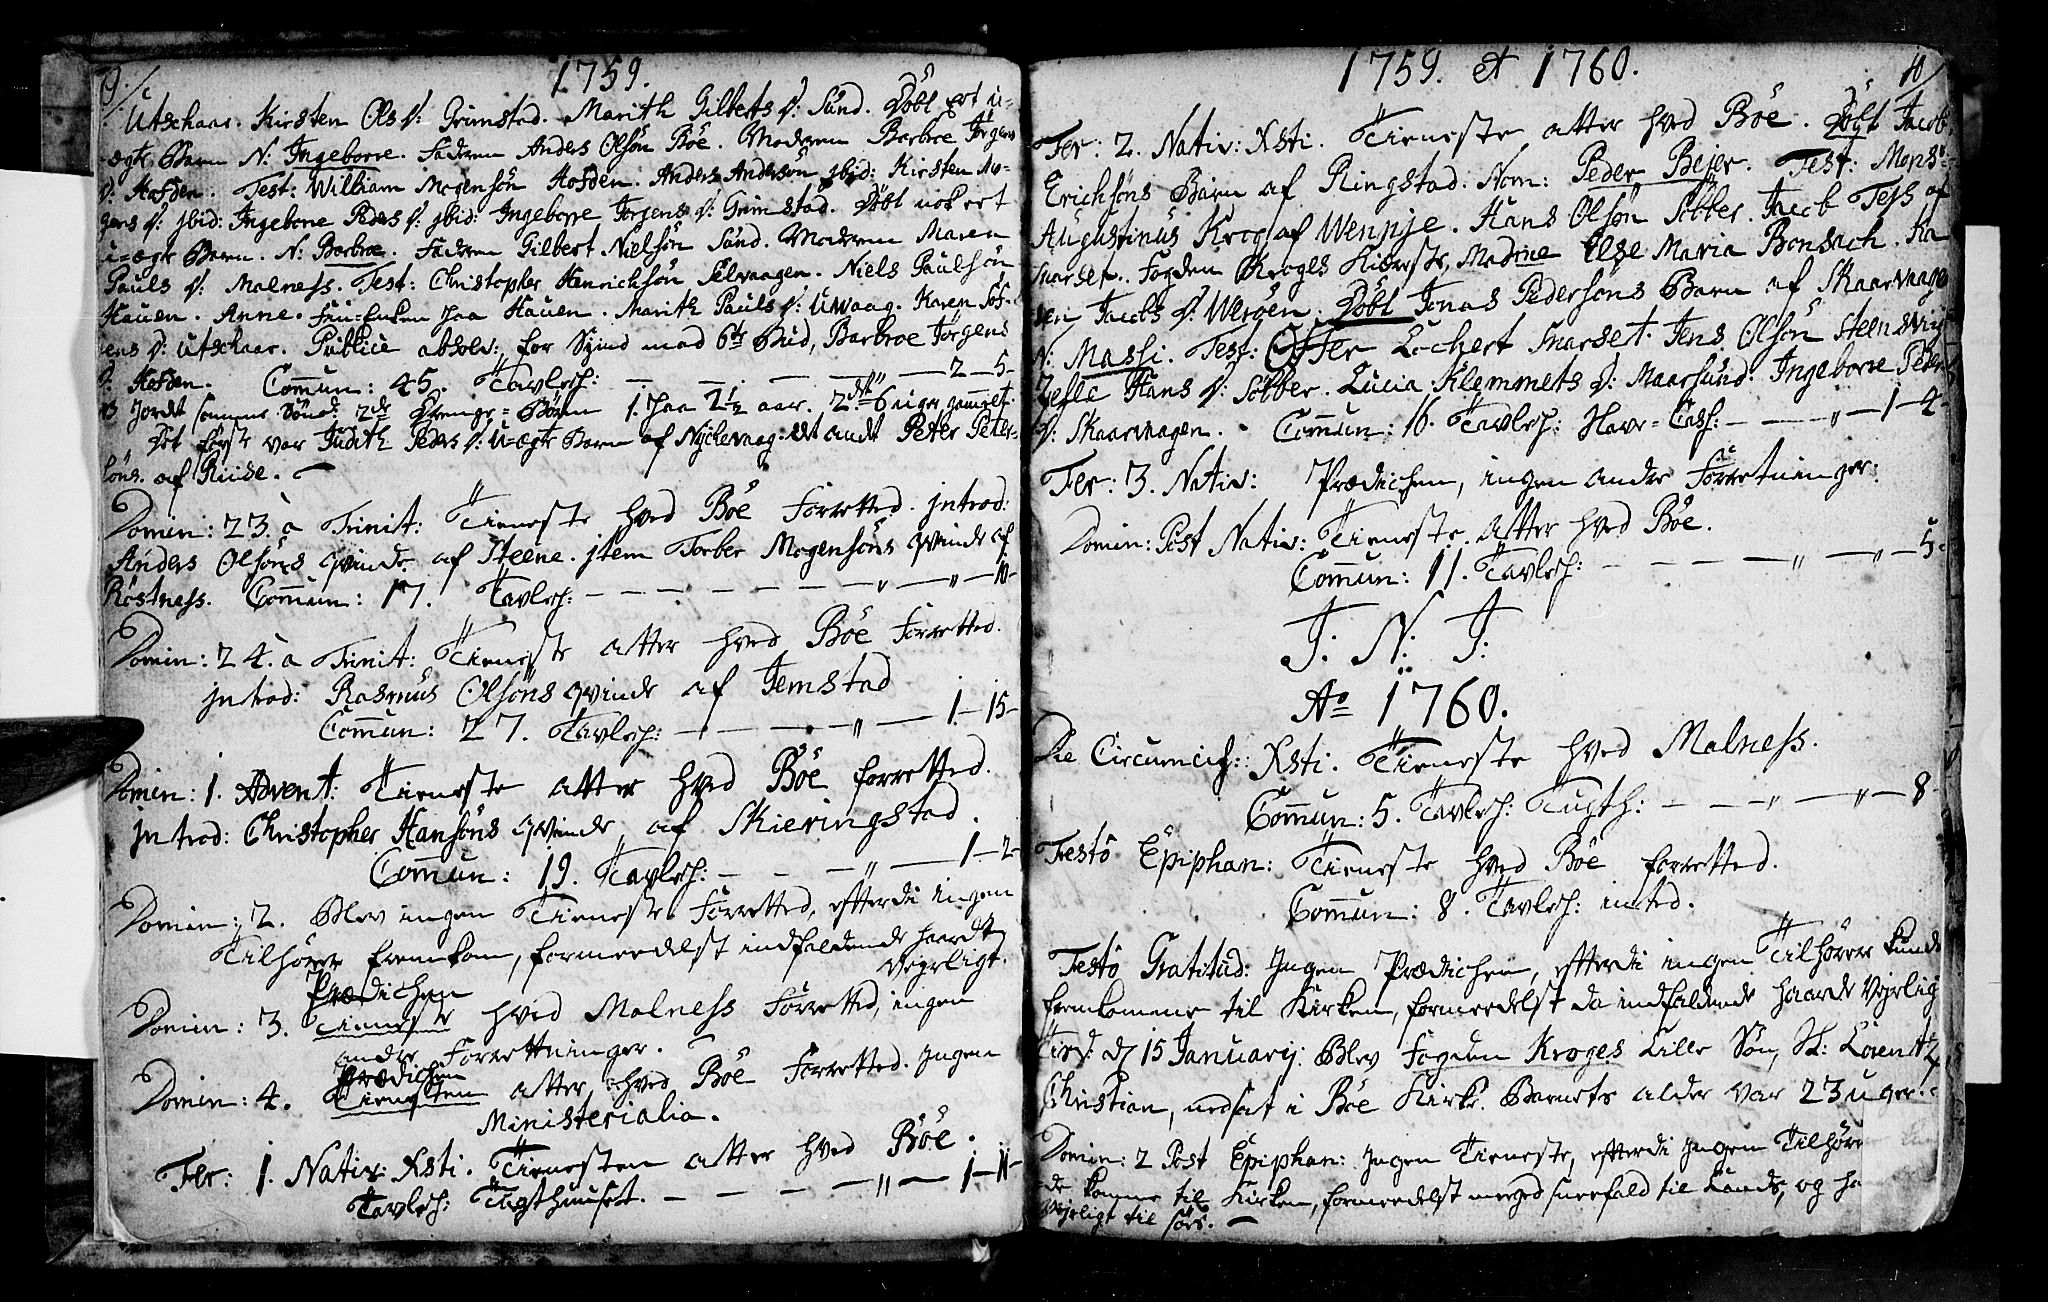 9.
1759.
Utschaar. Kirsten Ols D: Grimstad. Marith Gilberts D: Sund. Døbt Et U=
ægte Barn N: Ingeborre. Faderen Anders Olsøn Böe. Moderen Barbroe Jørgens
D: Hofden. Test: William Mogensøn Hofden. Anders Andersøn jbid: Kirsten Mo-
gens D: jbid: Ingeborre Peders D: jbid: Ingeborre Jørgens D: Grimstad. Døbt nok et
u=ægte Barn. N: Barbroe. Faderen Gilbert Nielsøn Sund. Moderen Maren
Pauls D: Malness. Test: Christopher Henrichsøn Selvaagen. Niels Paulsøn
Hauen. Anne. Enken paa Hauen. Marith Pauls D: Uwaag. Karen
D: Utschaar. Publice absolv: for Synd mod 6te Bud, Barbroe Jørgens
D: Hofden. Commun: 45. Tavlech: — — — 2 — 5-
Jordt samme Dag 2de Drenge=Børn 1. paa 2½ aar. 2det 6 uger gammel.
Det første var Judith Peders D: U=ægte Barn af Nyckevaag. det andt Peter Peter-
søns af Rinde.
Domin: 23. a Trinit: Tieneste hved Böe Forretted. jntrod:
Anders Olsøns qvinde af Steene. jtem Torber Mogensøns qvinde af
Röstness. Commun: 17. Tavlech: — — — 10-
Domin: 24. a Trinit: Tieneste atter hved Böe Forretted.
jntrod: Rasmus Olsøns qvinde af Jemstad
Commun: 27. Tavlech: — — — 1 — 15-
Domin: 1. Advent: Tieneste atter hved Böe forretted.
jntrod: Christopher Hansøns qvinde af Skieringstad.
Commun: 19. Tavlech: — — — 1 — 2-
Domin: 2. Blev ingen Tieneste Forretted, efterdi ingen
Tilhörer fremkom, formeedelst indfaldende haardt
Veyrligt.
Prædichen
Domin: 3. Tieneste hved Malness Forretted, ingen
andre Forretninger.
Prædichen
Domin: 4. Tienesten atter hved Böe Forretted. Ingen
Ministerialia.
Fer: 1. Nativ: Xsti. Tienesten atter hved Böe.
Tavlech: Tugthuuset. — — — 1 — 11-
1759. et 1760.
10
Fer: 2. Nativ: Xsti. Tieneste atter hved Böe. Døbt Jacob
Erichsøns Barn af Ringstad. Nom: Peder Bejer. Test: Mons:
Augustinus Krog af Wennje. Hans Olsøn Sölber. Jacob Tess af
Snarset. Fogden Kroges Kiereste, Madme Else Maria Bonsach. Ka
ren Jacobs D: Weröen. Døbt Jonas Pedersøns Barn af Skaarvaagen
N: Massi. Test: Offer Lockert Snarset. Jens Olsøn Steensvig
Zefle Hans D: Sölber. Lucia Klemmets D: Maarsund. Ingeborre Peders
D: Skaarvagen. Commun: 16. Tavlech: Have=Cass: — — — 1 — 4-
Fer: 3. Nativ: Prædichen, ingen andre Forretninger:
Domin: Post Nativ: Tieneste atter hved Böe.
Commun: 11. Tavlech: — — — 5-
J. N. J:
Ao 1760.
Die Circumcis: Xsti. Tieneste hved Malness.
Commun: 5. Tavlech: Tugth: — — — 8-
Festo Epiphan: Tieneste hved Böe forretted.
Commun: 8. Tavlech: inted.
Festo Gratitud: Ingen Prædichen, efterdi ingen Tilhörer kunde
fremkomme til Kirken, formeedelst da indfaldende haarde Vejrlig
Tirsd: d 15 Januarij: Blev Fogden Kroges Lille Søn, St: Lorentz
Christian, nedsat i Böe Kirke. Barnets alder var 23 uger.
Domin: 2 Post Epiphan: Ingen Tieneste, efterdi Ingen Tilhörer
de komme til Kirken, formeedelst meged sneefald til Lands, og ha
Vejrligt til söes.